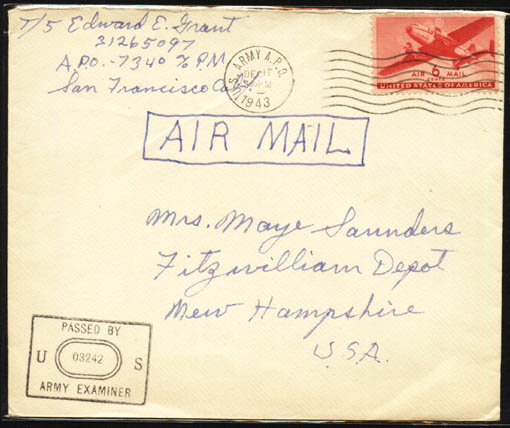 T/5 Edward E. Grant
31265097
A.P.O.-7340 % P.M.
San Francisco Cal.
U.S. ARMY A.P.O.
DEC 17
PM
1943
6
AIR MAIL
UNITED STATES OF AMERICA
AIR MAIL
Mrs. Maye Saunders
Fitzwilliam Depot
New Hampshire
U.S.A.
PASSED BY
U 03242 S
ARMY EXAMINER